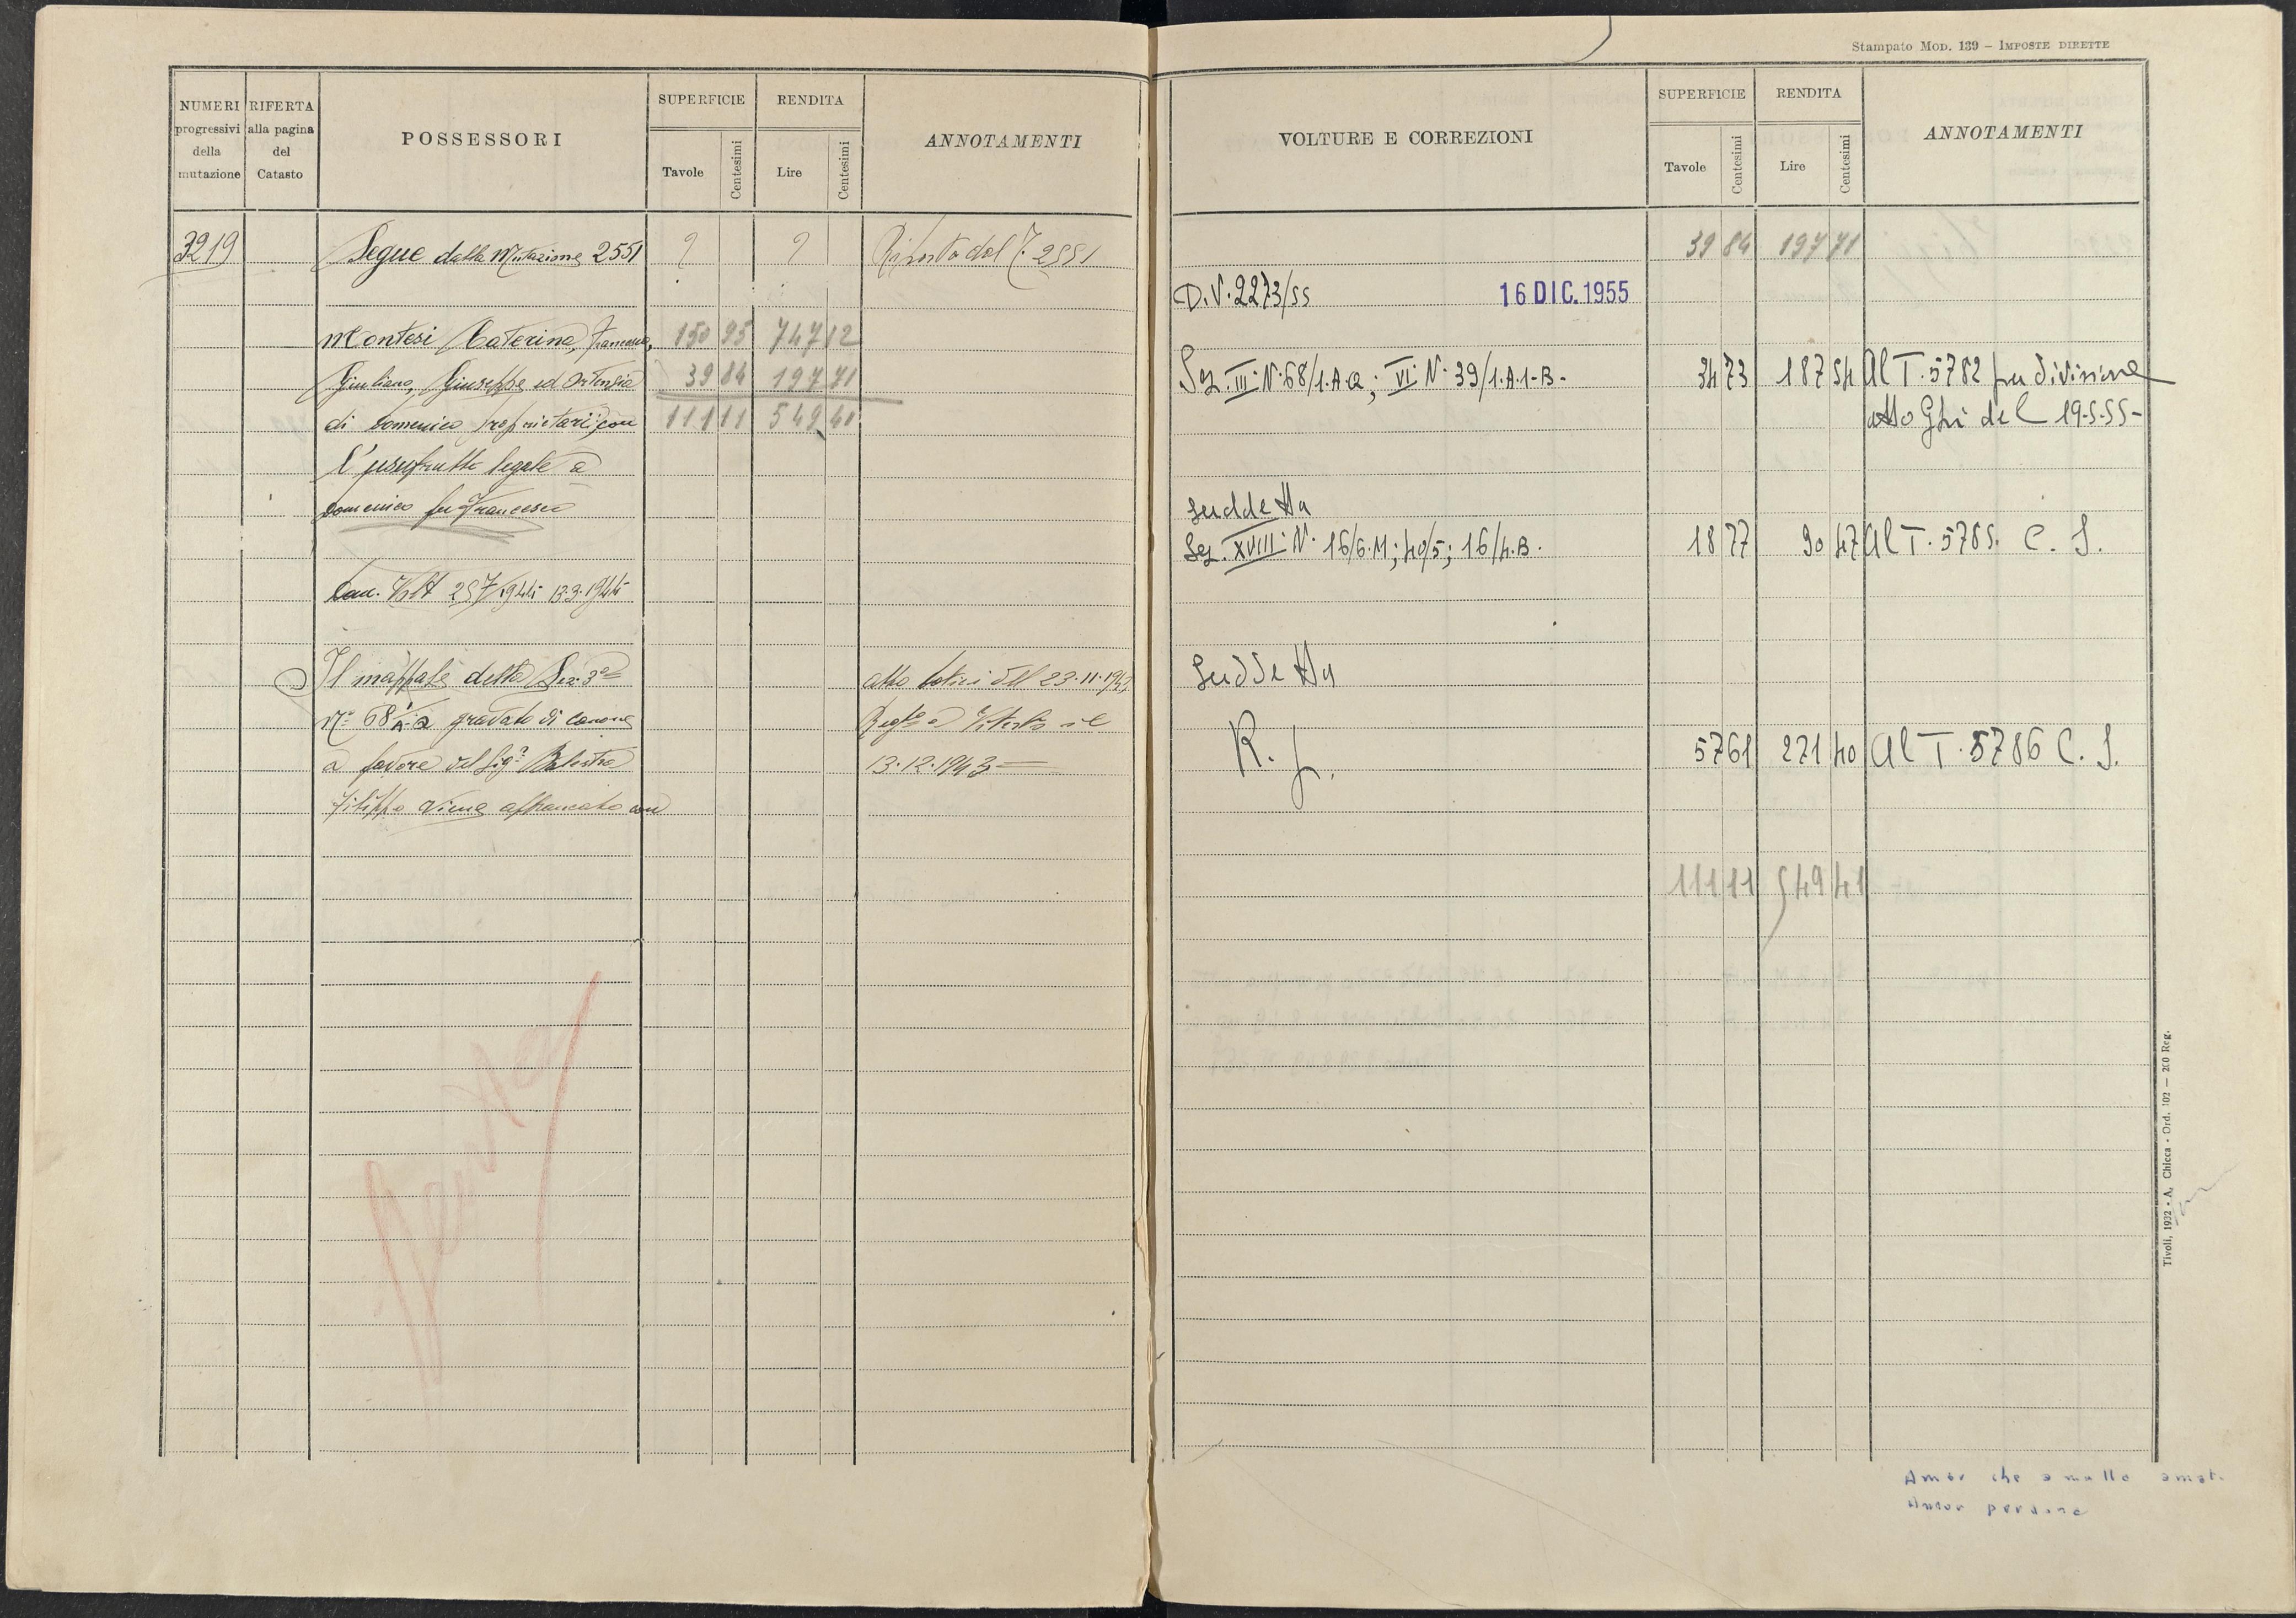 Stampato Mod. 139 – Imposte dirette
NUMERI progressivi della mutazione
RIFERTA alla pagina del Catasto
POSSESSORI
SUPERFICIE
Tavole
Centesimi
RENDITA
Lire
Centesimi
ANNOTAMENTI
3219 Segue dalla Mutazione 2551 ? ? Riporto dal T. 2551
Montesi Caterina, Francesco, 150 95 747 12
Giuliana, Giuseppe ed Ortensia 39 84 197 71
di Domenico proprietarii con 111 11 549 41
l'usufrutto legale a
Domenico fu Francesco
Volt 257/944 13.3.1944
Il mappale della Sez. 3ª atto del 23.11.1943
Nº 68/1 A-a gravato di canone Regto a Viterbo il
a favore del Sigr Balestra 13.12.1943
Filippo viene affrancato con
VOLTURE E CORREZIONI
SUPERFICIE
Tavole
Centesimi
RENDITA
Lire
Centesimi
ANNOTAMENTI
39 84 197 71
D.V. 2273/55 16 DIC. 1955
Sez. III N. 68/1.A.a; VI N. 39/1.A.1-B- 34 73 187 54 Al T. 5782 per divisione
atto Ghi del 19-5-55-
Suddetta
Sez. XVIII N. 16/6.M; 40/5; 16/4.B. 18 77 90 47 Al T. 5785. C. S.
Suddetta
R. 57 61 271 40 Al T. 5786 C. S.
111 11 549 41
Tivoli, 1932 - A. Chicca - Ord. 102 — 200 Reg.
Amor che a nullo amat.
Amor perdona